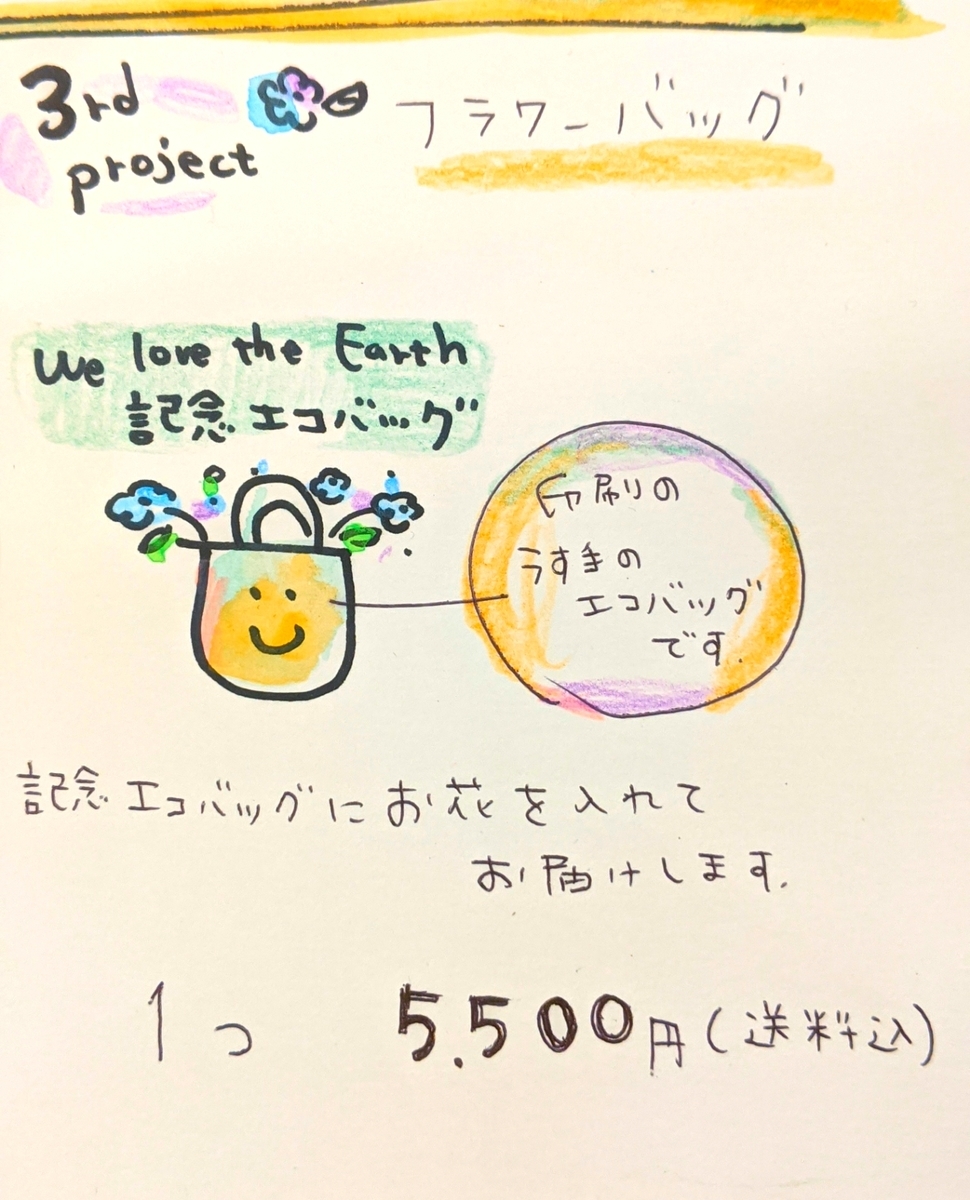 3rd
project
フラワーバッグ
We love the Earth
記念エコバッグ
印刷の
うす手の
エコバッグ
です.
記念エコバッグにお花を入れて
お届けします.
1つ 5.500円(送料込)